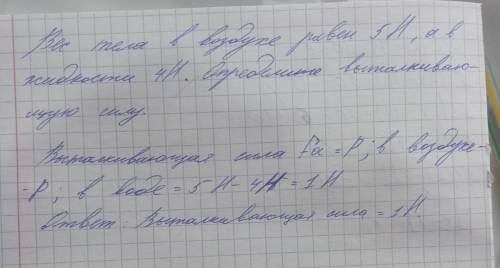 Вес тела в воздухе равен 5Н, а в
жидкости 4Н. Определите выталкиваю-
щую силу.
Выталкивающая сила Fa = P; в воздухе-
- P; в воде = 5Н - 4Н = 1Н
Ответ: Выталкивающая сила = 1Н